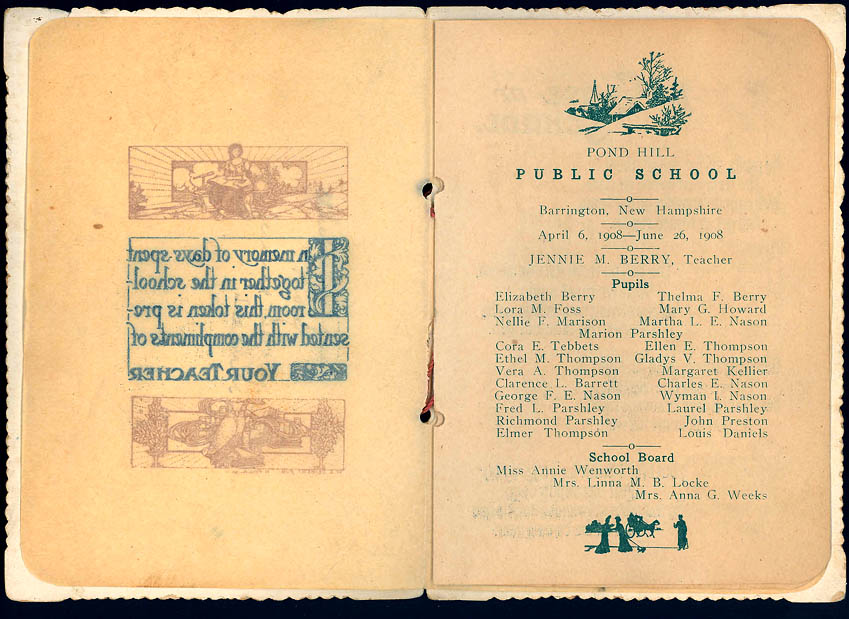 In memory of days spent
together in the school
room this token is pre-
sented with the compliments of
YOUR TEACHER
POND HILL
PUBLIC SCHOOL
Barrington, New Hampshire
April 6, 1908—June 26, 1908
JENNIE M. BERRY, Teacher
Pupils
Elizabeth Berry Thelma F. Berry
Lora M. Foss Mary G. Howard
Nellie F. Marison Martha L. E. Nason
Marion Parshley
Cora E. Tebbets Ellen E. Thompson
Ethel M. Thompson Gladys V. Thompson
Vera A. Thompson Margaret Kellier
Clarence L. Barrett Charles E. Nason
George F. E. Nason Wyman I. Nason
Fred L. Parshley Laurel Parshley
Richmond Parshley John Preston
Elmer Thompson Louis Daniels
School Board
Miss Annie Wenworth
Mrs. Linna M. B. Locke
Mrs. Anna G. Weeks